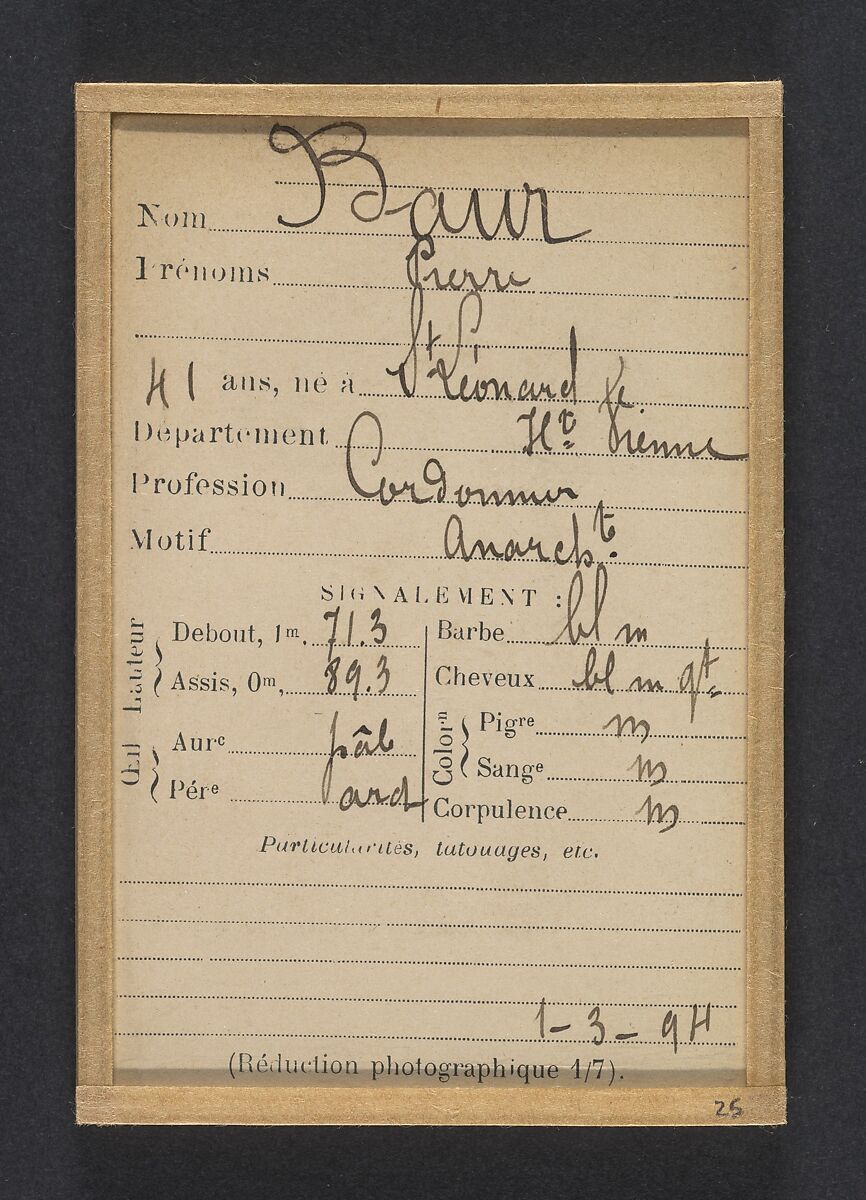 Nom Baur
Prénoms Pierre
41 ans, né à St Léonard
Département Hte Vienne
Profession Cordonnier
Motif Anarchte.
SIGNALEMENT :
Hauteur
Debout, 1m. 71.3
Assis, 0m, 89.3
Œil
Aure pâl
Pére ard
Barbe bl m
Cheveux bl m
Colorn
Pigre m
Sange m
Corpulence m
Particularités, tatouages, etc.
1-3-94
(Réduction photographique 1/7).
25